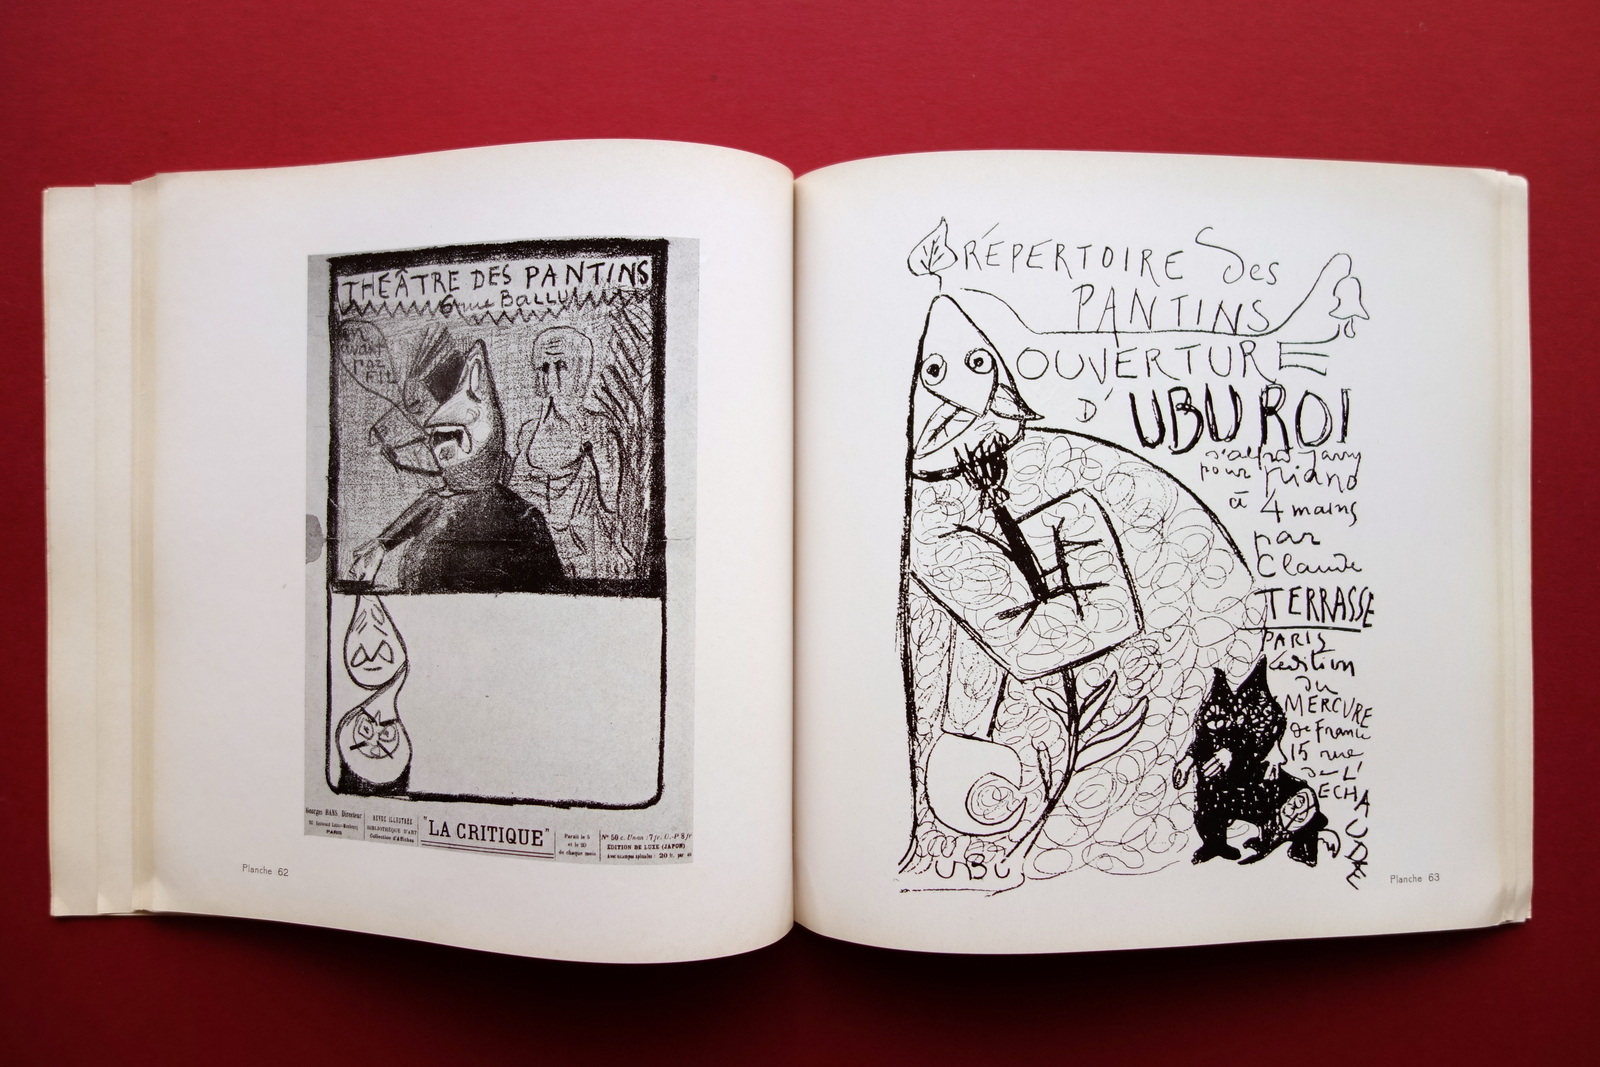 THÉÂTRE DES PANTINS
6 rue BALLU
Georges BANS, Directeur
PARIS
REVUE ILLUSTRÉE
BIBLIOTHÈQUE D'ART
Collection d'Affiches
"LA CRITIQUE"
Paraît le 5
et le 20
de chaque mois
ÉDITION DE LUXE (JAPON)
Planche 62
RÉPERTOIRE des
PANTINS
OUVERTURE
D'UBU ROI
d'alfred jarry
pour piano
à 4 mains
par
Claude
TERRASSE
PARIS
édition
du
MERCURE
de France
15 rue
de L'
ECHAUDÉ
UBU
Planche 63